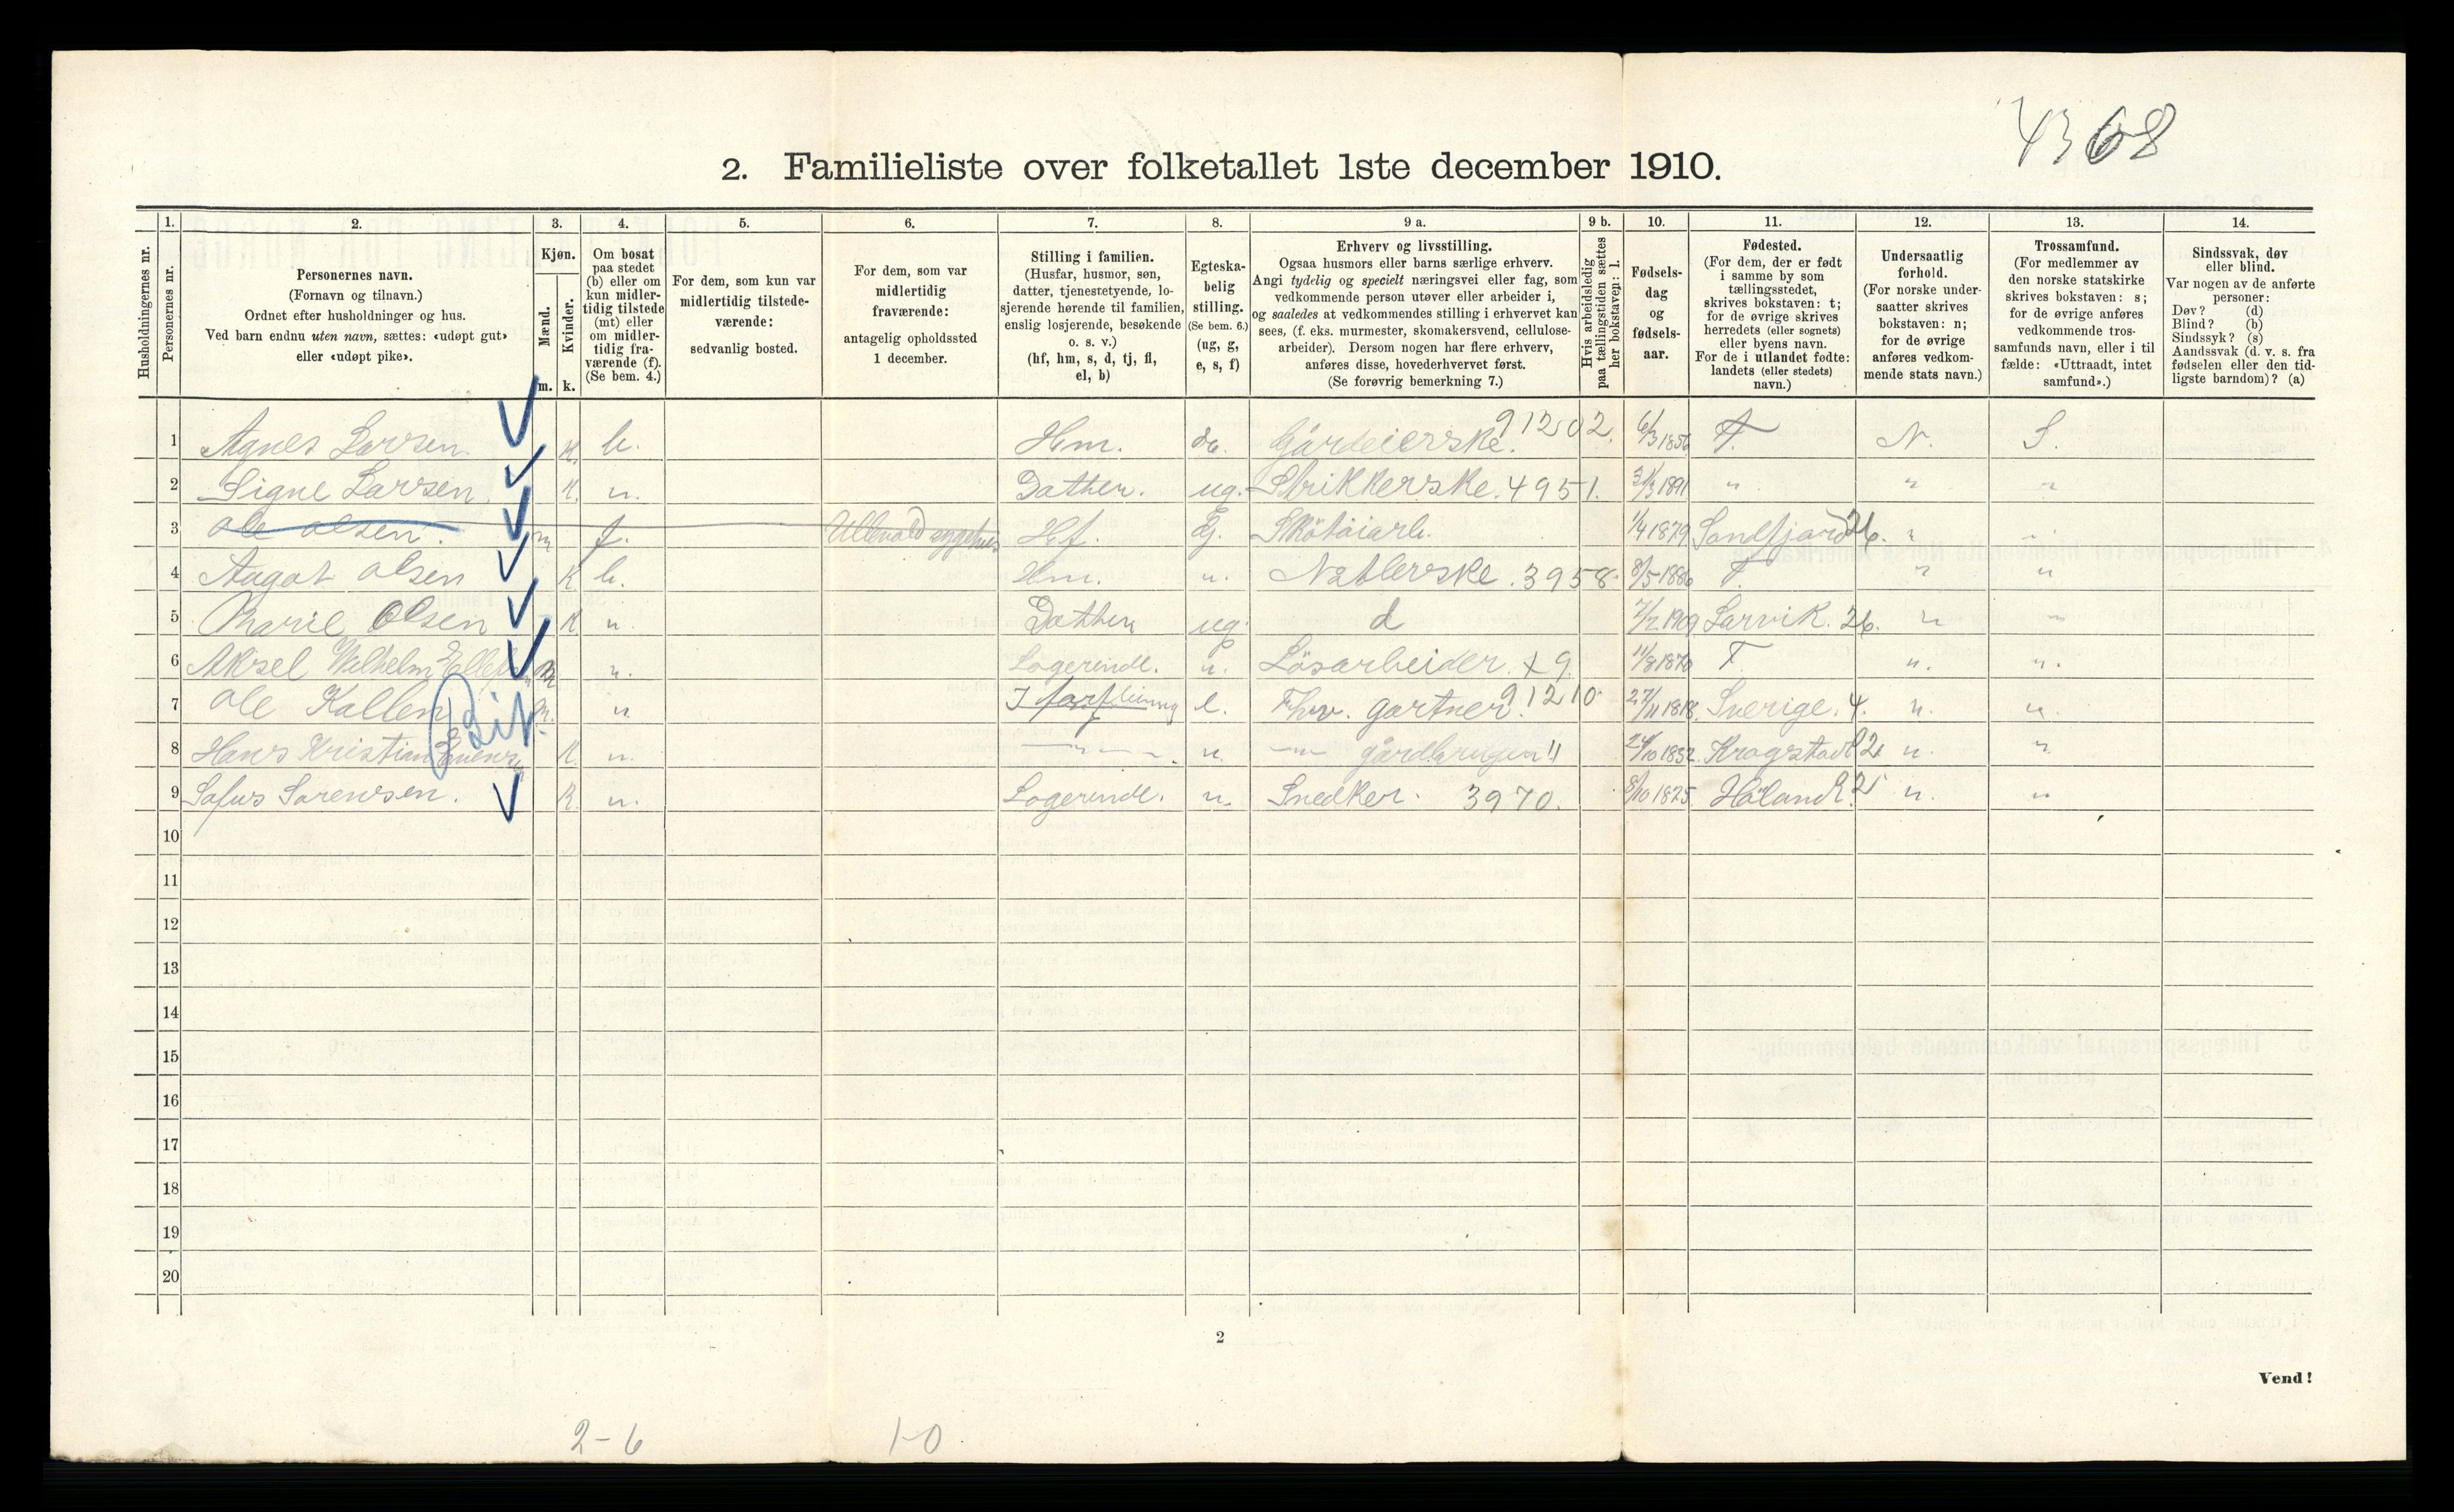 4368
2. Familieliste over folketallet 1ste december 1910.
Husholdningernes nr.
1. Personernes nr.
2. Personernes navn. (Fornavn og tilnavn.) Ordnet efter husholdninger og hus. Ved barn endnu uten navn, sættes: «udøpt gut» eller «udøpt pike».
3. Kjøn. Mænd. m. Kvinder. k.
4. Om bosat paa stedet (b) eller om kun midlertidig tilstede (mt) eller om midlertidig fraværende (f). (Se bem. 4.)
5. For dem, som kun var midlertidig tilstedeværende: sedvanlig bosted.
6. For dem, som var midlertidig fraværende: antagelig opholdssted 1 december.
7. Stilling i familien. (Husfar, husmor, søn, datter, tjenestetyende, losjerende hørende til familien, enslig losjerende, besøkende o. s. v.) (hf, hm, s, d, tj, fl, el, b)
8. Egteskabelig stilling. (Se bem. 6.) (ug, g, e, s, f)
9 a. Erhverv og livsstilling. Ogsaa husmors eller barns særlige erhverv. Angi tydelig og specielt næringsvei eller fag, som vedkommende person utøver eller arbeider i, og saaledes at vedkommendes stilling i erhvervet kan sees, (f. eks. murmester, skomakersvend, cellulosearbeider). Dersom nogen har flere erhverv, anføres disse, hovederhvervet først. (Se forøvrig bemerkning 7.)
9 b. Hvis arbeidsledig paa tællingstiden sættes her bokstaven: l.
10. Fødselsdag og fødselsaar.
11. Fødested. (For dem, der er født i samme by som tællingsstedet, skrives bokstaven: t; for de øvrige skrives herredets (eller sognets) eller byens navn. For de i utlandet fødte: landets (eller stedets) navn.)
12. Undersaatlig forhold. (For norske undersaatter skrives bokstaven: n; for de øvrige anføres vedkommende stats navn.)
13. Trossamfund. (For medlemmer av den norske statskirke skrives bokstaven: s; for de øvrige anføres vedkommende trossamfunds navn, eller i tilfælde: «Uttraadt, intet samfund».)
14. Sindssvak, døv eller blind. Var nogen av de anførte personer: Døv? (d) Blind? (b) Sindssyk? (s) Aandssvak (d. v. s. fra fødselen eller den tidligste barndom)? (a)
1 Agnes Larsen K. b. Hm. Gårdeierske. 91202. 6/3 1856 T. N. S.
2 Signe Larsen K. " Datter. ug. Strikkerske. 4951. 1891 " " "
3 Ole Olsen. m f. Hf. g. Skötöiarb. 1/4 1879 Sandfjord 26. " "
4 Aagot Olsen K b. Hm. " 3958 8/5 1886 T. " "
5 Marie Olsen K " Datter ug. d 1909 Larvik. 26. " "
6 Aksel Wilhelm m " Logerende. " Lösarbeider. x9 11/8 1870 T " "
7 Ole Kallen m. " I forpleining e. Fhv. gartner. 91210 27/11 1818. Sverige. 4. " "
8 Hans Kristian K. " " " " 24/10 1832. Kragstad 2 " "
9 Sofus Sorensen. K. " Logerende. " Snedker. 3970. 8/10 1825. Höland 2 " "
10
11
12
13
14
15
16
17
18
19
20
2
Vend!
2-6 1-0